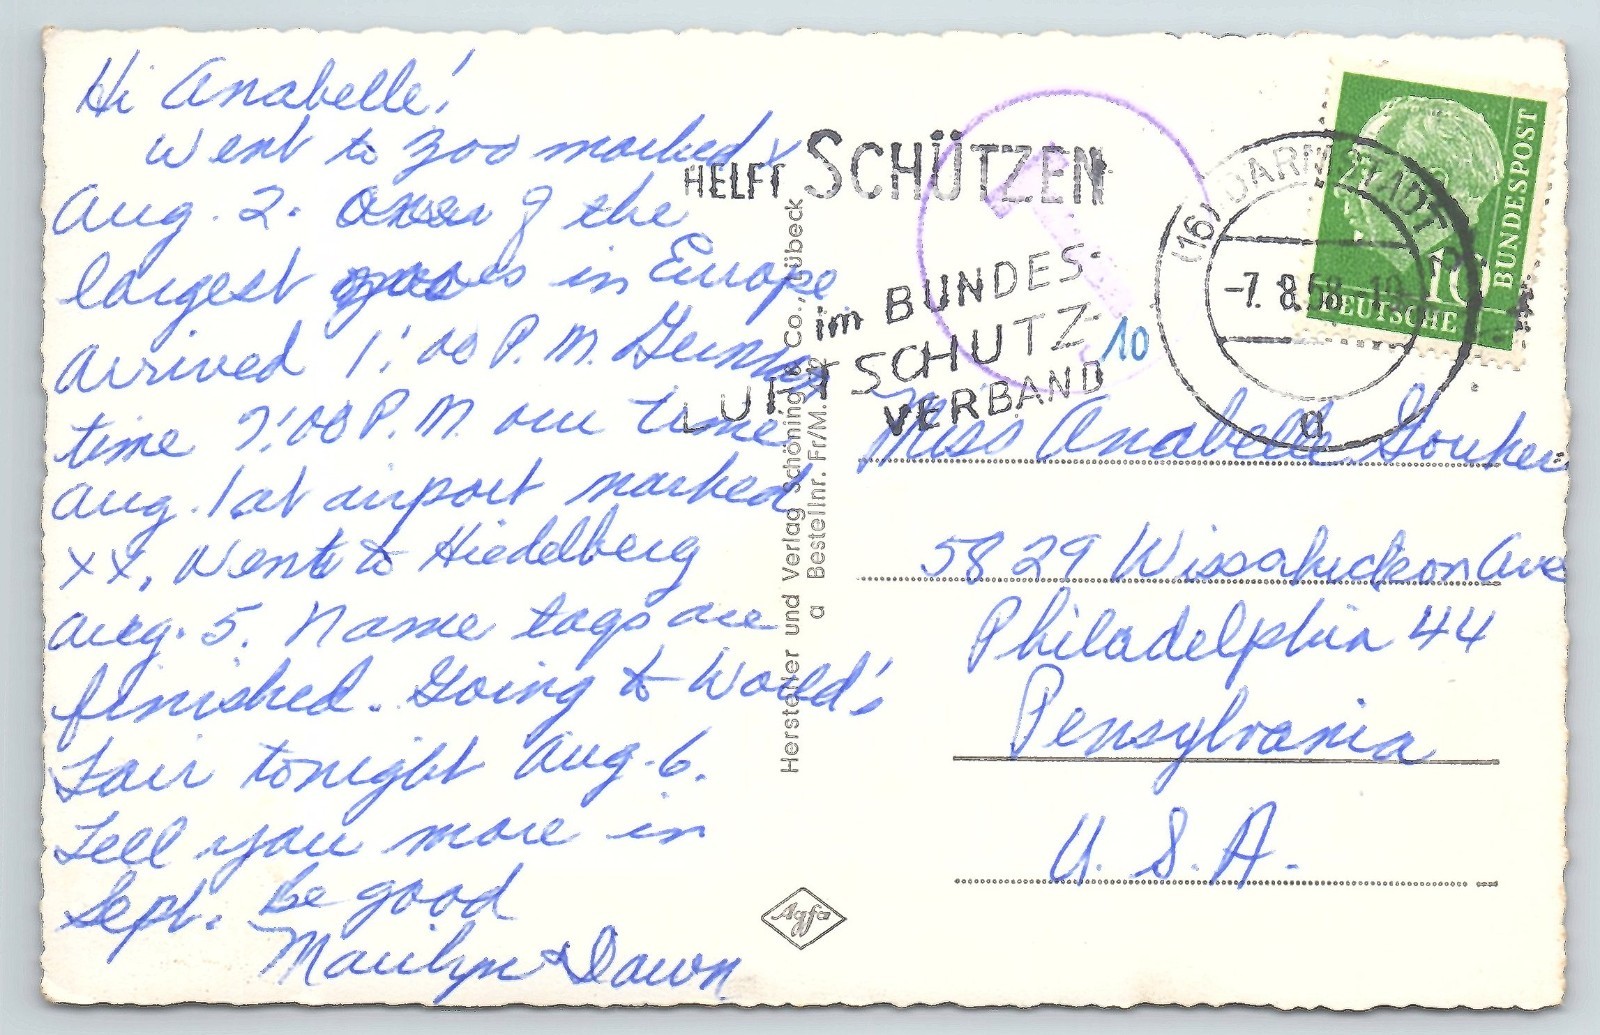 Hi Anabelle!
Went to zoo marked x
Aug. 2. One of the
largest zoos in Europe
Arrived 1:00 P.M. German
time 7:00 P.M. our time
Aug. 1 at airport marked
xx, Went to Hiedelberg
Aug. 5. Name tags are
finished. Going to World's
Fair tonight Aug. 6.
Tell you more in
Sept. Be good
Marilyn & Dawn
Hersteller und Verlag Schöning & Co., Lübeck
a Bestellnr. Fr/M.
Agfa
HELFT SCHÜTZEN
im BUNDES-
LUFTSCHUTZ-
VERBAND
10
(16) DARMSTADT
-7.8.58-19
a
10
DEUTSCHE
BUNDESPOST
Miss Anabelle
5829 Wissahickon Ave
Philadelphia 44
Pensylvania
U. S. A.